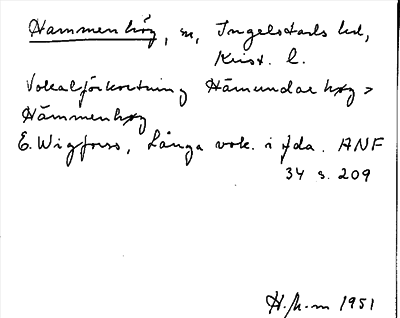 Hammenhög, sn, Ingelstads hd,
Krist. l.
Vokalförkortning Hāmundar høg >
Hămmenhøg
E. Wigforss, Långa vok. i fda. ANF
34 s. 209
1951